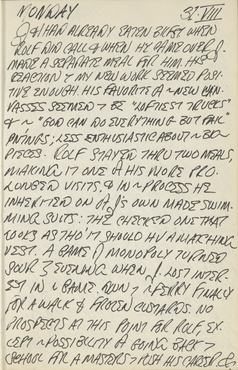 MONDAY 31-VIII
J & I HAD ALREADY EATEN BRKF WHEN
ROLF DID CALL & WHEN HE CAME OVER J
MADE A SEPARATE MEAL FOR HIM. HIS
REACTION TO MY NEW WORK SEEMED POSI-
TIVE ENOUGH. HIS FAVORITES OF ~ NEW CAN-
VASSES SEEMED TO BE "LOFTIEST TRUSTS"
& ~ "GOD CAN DO EVERYTHING BUT FAIL"
PNTINGS; LESS ENTHUSIASTIC ABOUT ~
PIECES. ROLF STAYED THRU TWO MEALS,
MAKING IT ONE OF HIS MORE PRO-
LONGED VISITS, & IN ~ PROCESS HE
INHERITED ON OF J'S OWN MADE SWIM-
MING SUITS: THE CHECKED ONE THAT
LOOKS AS THO' IT SHOULD HV A MATCHING
VEST. A GAME OF MONOPOLY TURNED
SOUR IN EVENING WHEN J LOST INTER-
EST IN ~ GAME. DWN TO ~ FERRY FINALLY
FOR A WALK & FROZEN CUSTARDS. NO
PROSPECTS AT THIS POINT FOR ROLF EX-
CEPT ~ POSSIBILITY OF GOING BACK TO
SCHOOL FOR A MASTERS TO PUSH HIS CAREER.